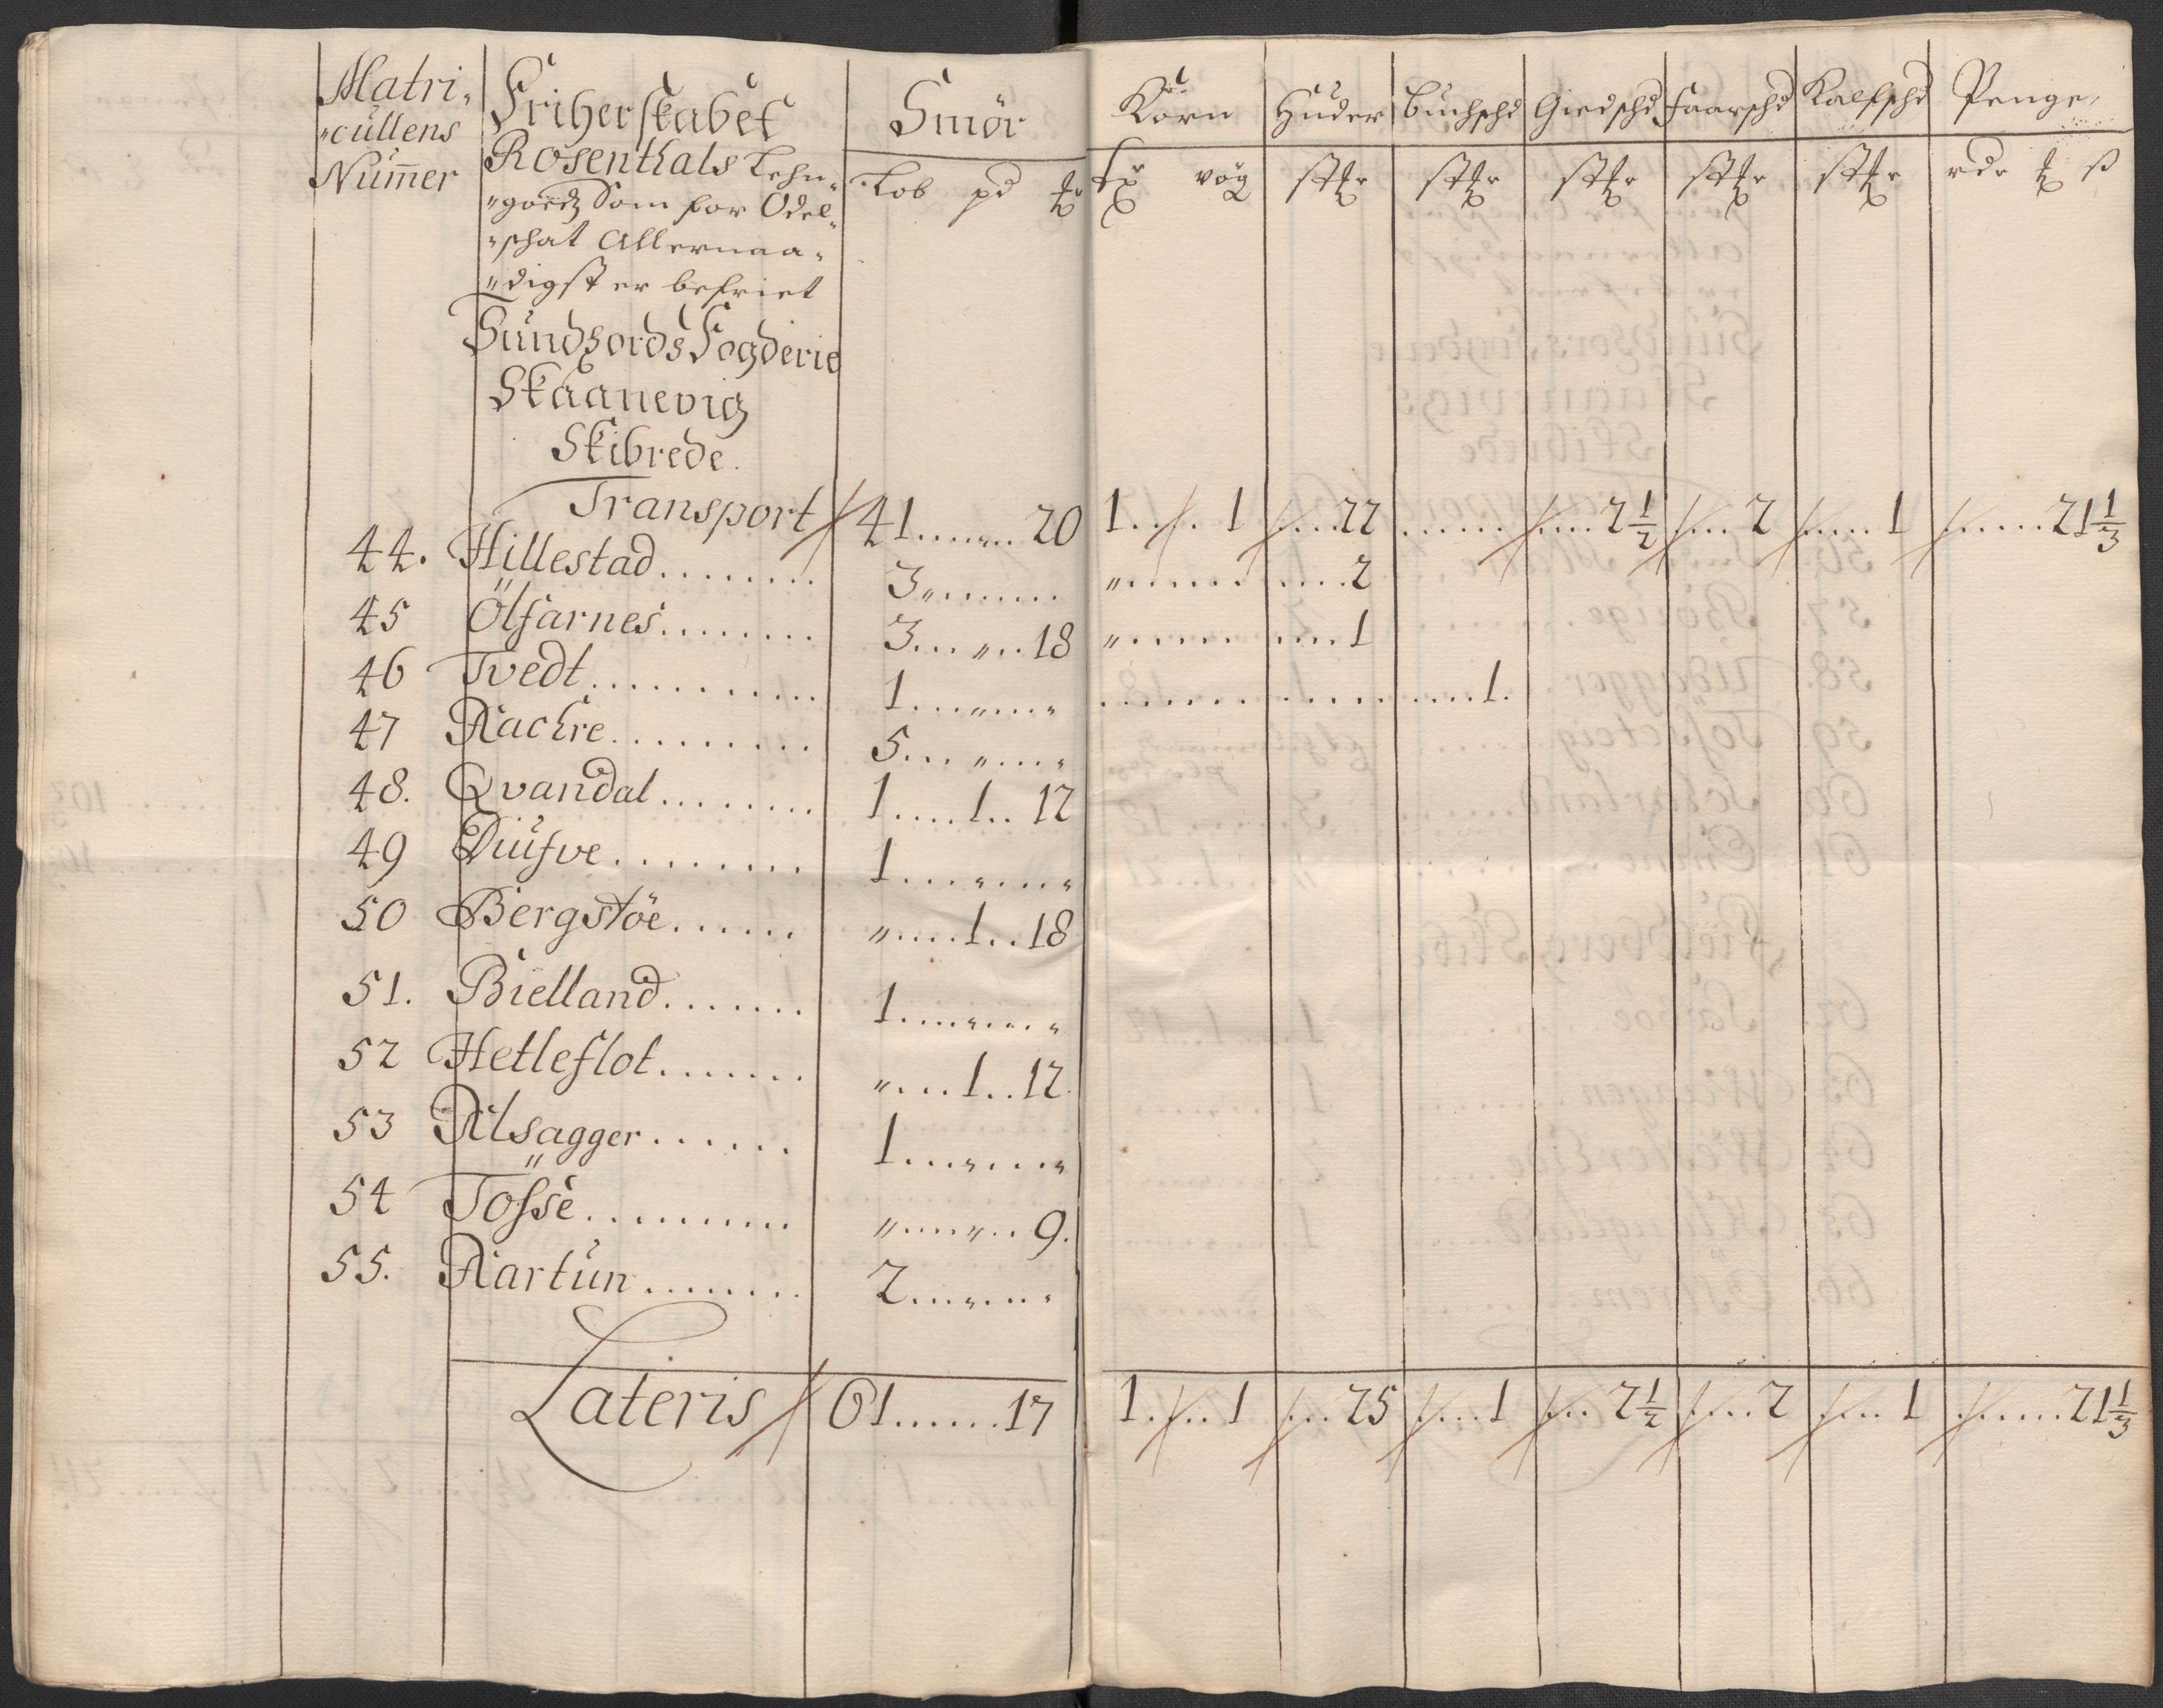 Matri-
"cullens
Numer
Friherskabet
Rosenthals Lehn-
"goedz Som for Odel-
"schat Allernaa-
"digst er befriet
Sundhords Fogderie
Skaanevig
Skibrede.
Smör
Lob pd
Korn
vög
Huder
Buchschd
Giedschd
Faarschd
Kalfschd
Penge
rdr ß
Transport 41......20 1.... 1 ....22 ...... ....2½ ....2 ....1 ......21⅓
44. Hillestad........ 3"...... "...... ....2
45 Ölfarnes........ 3..."..18 "...... ....1
46 Tvedt........... 1..."..." ................1.
47 Aachre.......... 5..."..."
48. Qvandal........ 1....1..12
49 Diufve......... 1..."..."
50 Bergstöe...... "....1..18
51. Bielland....... 1..."..."
52 Hetleflot....... "....1..12.
53 Alsagger...... 1..."..."
54 Tösse.......... "...."..9.
55. Aartun........ 2..."..."
Lateris 61......17 1.... 1 ....25 ....1 ....2½ ....2 ....1 ......21⅓